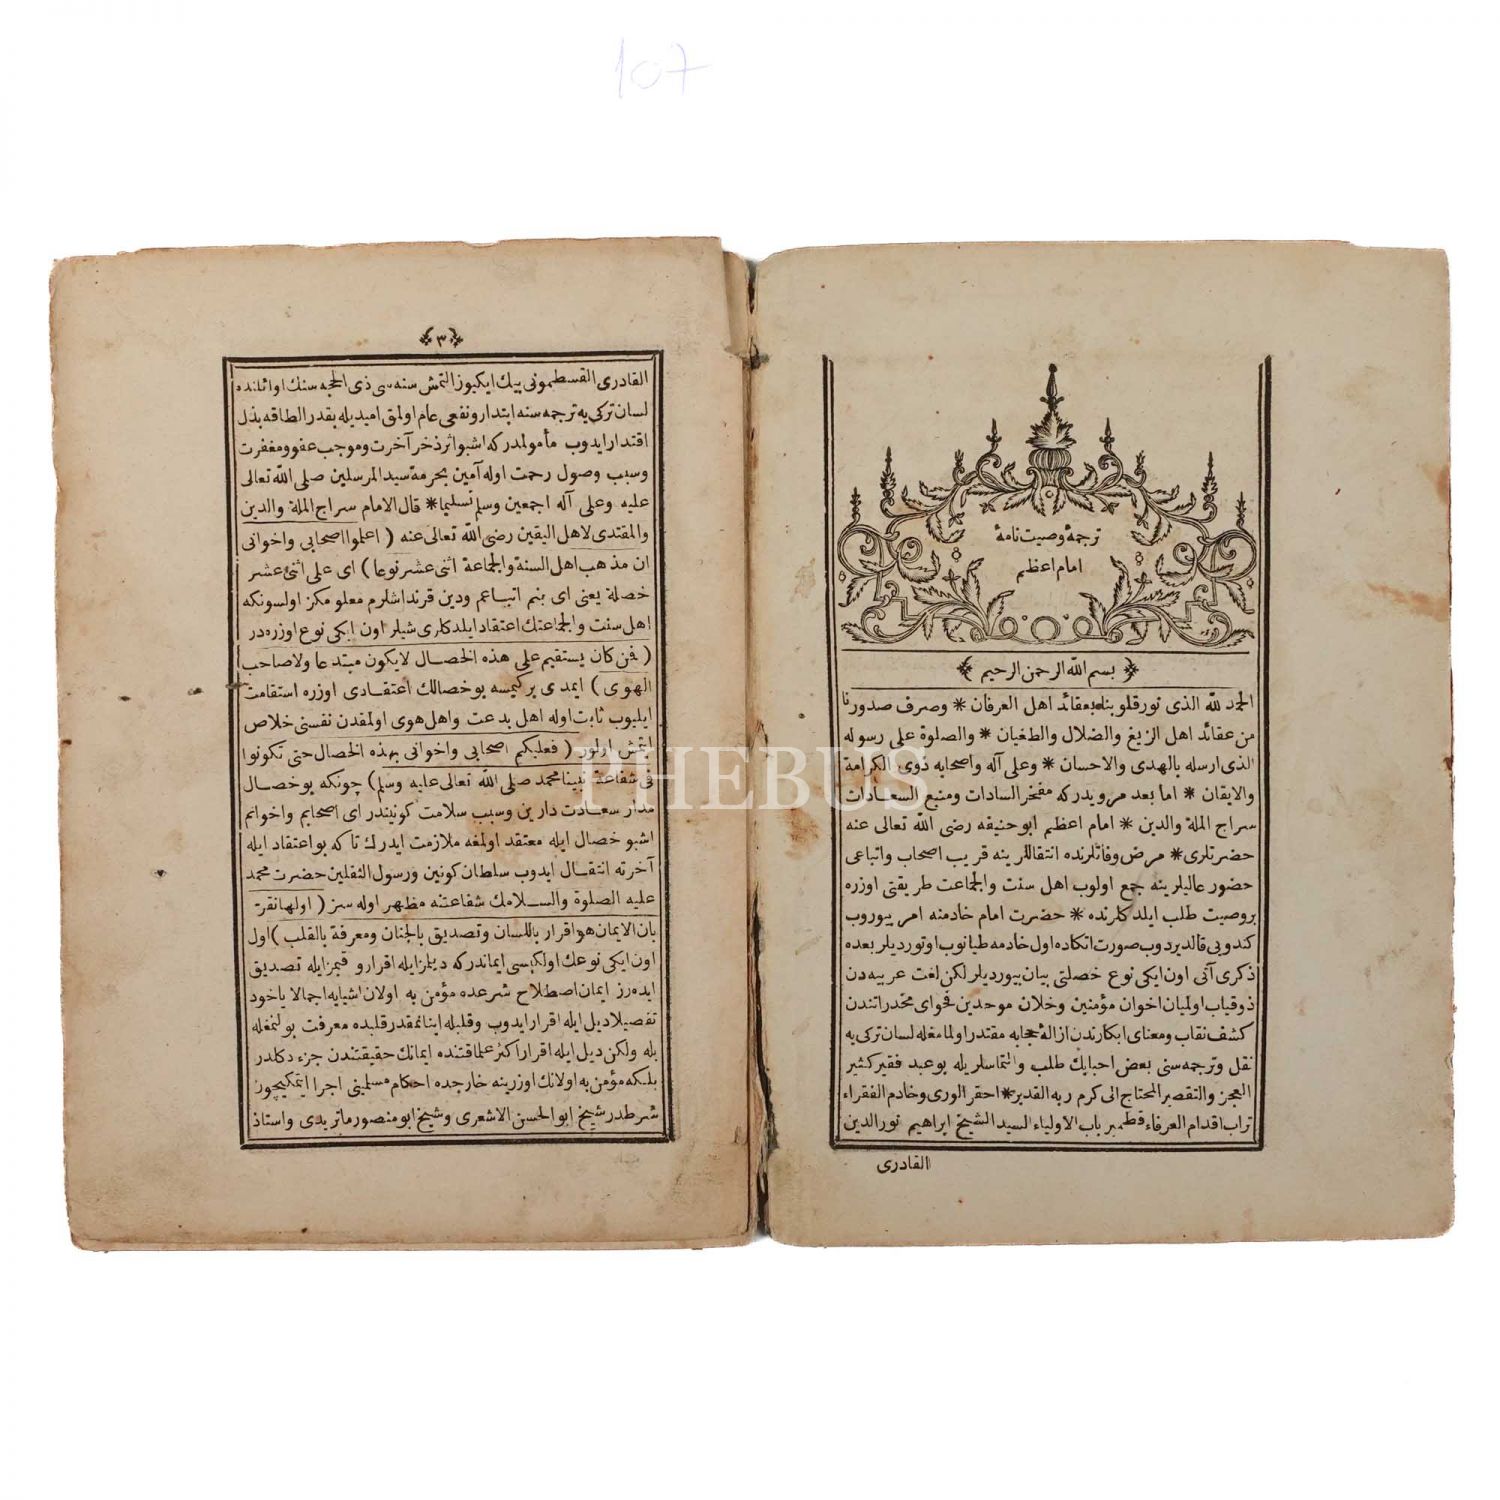 107
ترجمهٔ وصیت نامهٔ
امام اعظم
بسم الله الرحمن الرحیم
الحمد لله الذی نور قلوبنا بعقائد اهل العرفان * وصرف صدورنا
من عقائد اهل الزیغ والضلال والطغیان * والصلوة علی رسوله
الذی ارسله بالهدی والاحسان * وعلی آله واصحابه ذوی الکرامة
والایقان * اما بعد مرویدرکه مفخر السادات ومنبع السعادات
سراج الملة والدین * امام اعظم ابو حنیفه رضی الله تعالی عنه
حضرتلری * مرض وفاتلرنده انتقاللرینه قریب اصحاب واتباعی
حضور عالیلرینه جمع اولوب اهل سنت والجماعت طریقتی اوزره
بر وصیت طلب ایلدکلرنده * حضرت امام خادمنه امر بیوروب
کندویی قالدیردوب صورت اتکاده اول خادمه طیانوب اوتوردیلر بعده
ذکری آتی اون ایکی نوع خصلتی بیان بیوردیلر لکن لغت عربیه دن
ذوقیاب اولمیان اخوان مؤمنین وخلان موحدین فحوای مخدراتندن
کشف نقاب ومعنای ابکارندن ازالهٔ حجابه مقتدر اولمامغله لسان ترکی یه
نقل وترجمه سنی بعض احبابک طلب والتماسلریله بو عبد فقیر کثیر
العجز والتقصیر المحتاج الی کرم ربه القدیر * احقر الوری وخادم الفقراء
تراب اقدام العرفاء قطمیر باب الاولیاء السید الشیخ ابراهیم نور الدین
القادری
۳
القادری القسطمونی بیک ایکیوز التمش سنه سی ذی الحجه سنک اواثلنده
لسان ترکی یه ترجمه سنه ابتدار ونفعی عام اولمق امیدیله بقدر الطاقه بذل
اقتدار ایدوب مأمولمدرکه اشبو اثر ذخر آخرت وموجب عفو ومغفرت
وسبب وصول رحمت اوله آمین بحرمة سید المرسلین صلی الله تعالی
علیه وعلی آله اجمعین وسلم تسلیما * قال الامام سراج الملة والدین
والمقتدی لاهل الیقین رضی الله تعالی عنه ( اعلموا اصحابی واخوانی
ان مذهب اهل السنة والجماعة اثنی عشر نوعا ) ای علی اثنی عشر
خصلة یعنی ای بنم اتباعم ودین قرنداشلرم معلومکز اولسونکه
اهل سنت والجماعتک اعتقاد ایلدکلری شیلر اون ایکی نوع اوزره در
( فمن کان یستقیم علی هذه الخصال لا یکون مبتدعا ولا صاحب
الهوی ) ایمدی بر کیمسه بو خصالک اعتقادی اوزره استقامت
ایلیوب ثابت اوله اهل بدعت واهل هوی اولمقدن نفسنی خلاص
ایتمش اولور ( فعلیکم اصحابی واخوانی بهذه الخصال حتی تکونوا
فی شفاعة نبینا محمد صلی الله تعالی علیه وسلم ) چونکه بو خصال
مدار سعادت دارین وسبب سلامت کونیندر ای اصحابم واخوانم
اشبو خصال ایله معتقد اولمغه ملازمت ایدرک تا که بو اعتقاد ایله
آخرته انتقال ایدوب سلطان کونین ورسول الثقلین حضرت محمد
علیه الصلوة والسلامک شفاعتنه مظهر اوله سز ( اولها نقر
بان الایمان هو اقرار باللسان وتصدیق بالجنان ومعرفة بالقلب ) اول
اون ایکی نوعک اولکیسی ایماندرکه دیلمز ایله اقرار و قلبمز ایله تصدیق
ایده رز ایمان اصطلاح شرعده مؤمن به اولان اشیایه اجمالا یاخود
تفصیلا دیل ایله اقرار ایدوب وقلبیله اینانمقدر قلبده معرفت بولنمغله
بله ولکن دیل ایله اقرار اکثر علما قتنده ایمانک حقیقتندن جزء دکلدر
بلکه مؤمن به اولانک اوزرینه خارجده احکام مسلمینی اجرا ایتمکیچون
شرطدر شیخ ابو الحسن الاشعری وشیخ ابو منصور ماتریدی واستاذ
PHEBUS